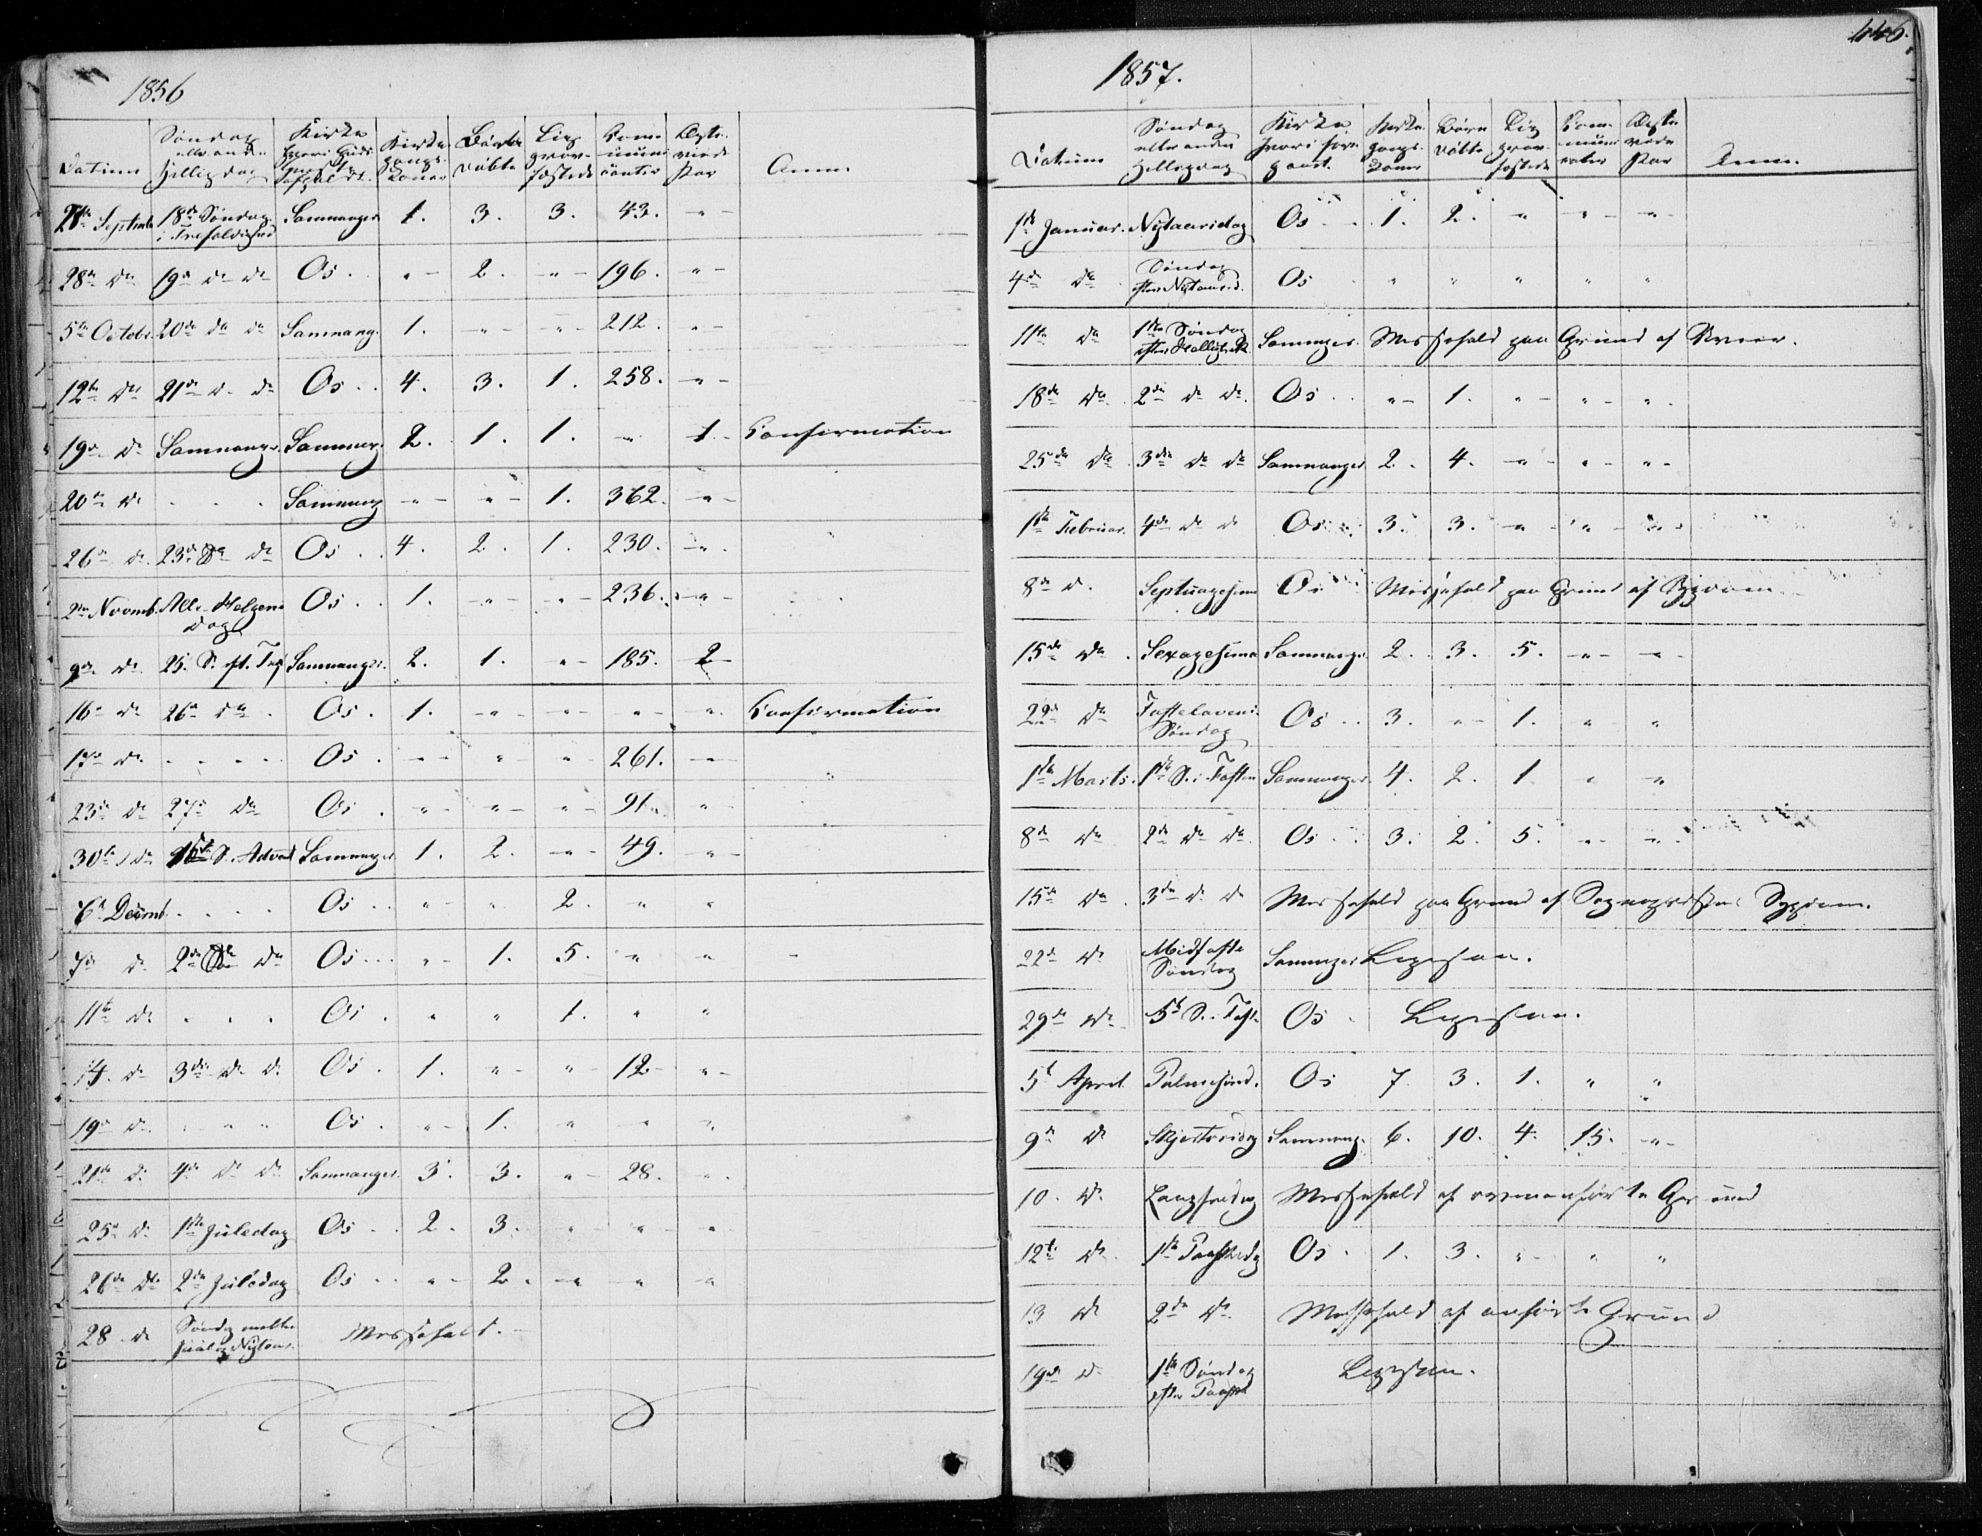 1856
Datum | Søndag eller anden Hellig dag | Kirke hvori Guds tjenest afholdt. | Kirke gangs Koner | Børn døbte | Liig grav fæstede | Communi canter | Ægte viede Par | Anm.
21de Septembr | 18de Søndag i Trefoldighed | Samnanger | 1. | 3. | 3. | 43. | "
28de do | 19de do do | Os. | " | 2. | " | 196. | "
5te Octobr. | 20de do do | Samnang. | 1. | " | " | 212. | "
12te do | 21de do do | Os | 4. | 3. | 1. | 258. | "
19de do | Samnanger | Samnang. | 2. | 1. | 1. | " | 1. | Confirmation
20de do | | Samnang | " | " | 1. | 362. | "
26de do | 23de do do | Os | 4. | 2. | 1. | 230. | "
2den Novmb. | Alle Helgens dag | Os | 1. | " | " | 236. | "
9de do | 25. S. eft. Tref | Samnanger. | 2. | 1. | " | 185. | 2
16de do | 26de do | Os. | 1. | " | " | " | " | Confirmation
17de do | | Os. | " | " | " | 261. | "
23de do | 27de do | Os | " | " | " | 91. | "
30te do | 1ste S. Advent | Samnanger | 1. | 2. | " | 49. | "
6te Decmb. | | Os | " | " | 2. | " | "
7de do | 2den do do | Os | " | 1. | 5. | " | "
11te do | | Os. | " | " | 1. | " | "
14. do | 3die do do | Os. | 1. | " | " | 12 | "
19de do | | Os. | " | 1. | " | " | "
21de do | 4de do do | Samnanger. | 3. | 3. | " | 28. | "
25de do | 1ste Juledag | Os | 2. | 3. | " | " | "
26de do | 2den Juledag | Os | " | 2. | " | " | "
28 do | Søndag mellem Juul og Nytaar. | Messefald.
446.
1857.
Datum | Søndag eller anden Helligdag | Kirke hvori forre gaaet. | Kirke gangs Koner | Børn døbte | Liig grav fæstede | Com muni canter | Ægte viede Par | Anm.
1ste Januar. | Nytaarsdag | Os | 1. | 2. | " | " | "
4de do | Søndag efter Nytaarsd. | Os | " | " | " | " | "
11te do | 1ste Søndag efter Helligtrek | Samnanger. | Messefald paa Grund af Veier.
18de do | 2den do do. | Os | " | 1. | " | " | "
25de do | 3die do do | Samnanger | 2. | 4. | " | " | "
1ste Februar. | 4de do do | Os | 3. | 3. | " | " | "
8de do. | Septuagesima | Os | Messefald paa Grund af Sygdom.
15de do. | Sexagesima | Samnang. | 2. | 3. | 5. | " | "
22de do | Fastelavens Søndag | Os | 3. | " | 1. | " | "
1ste Marts. | 1ste S. i Fasten | Samnanger | 4. | 2. | 1 | " | "
8de do | 2den do do. | Os | 3. | 2. | 5. | " | "
15de do. | 3die do do | Messefald paa Grund af Sognepræstens Sygdom.
22de do | Midfaste Søndag | Samnanger
29de do | 5te S. i Faste | Os
5te April | Palmesønd. | Os | 7 | 3. | 1. | " | "
9de do | Skjertorsdag | Samnang. | 6. | 10. | 4. | 15. | "
10. do. | Langfredag | Messefald af ovenanførte Grund
12te do | 1ste Paaskedg | Os. | 1. | 3. | " | " | "
13 do | 2den do. | Messefald af anførte Grund
19de do | 1ste Søndag efter Paaske